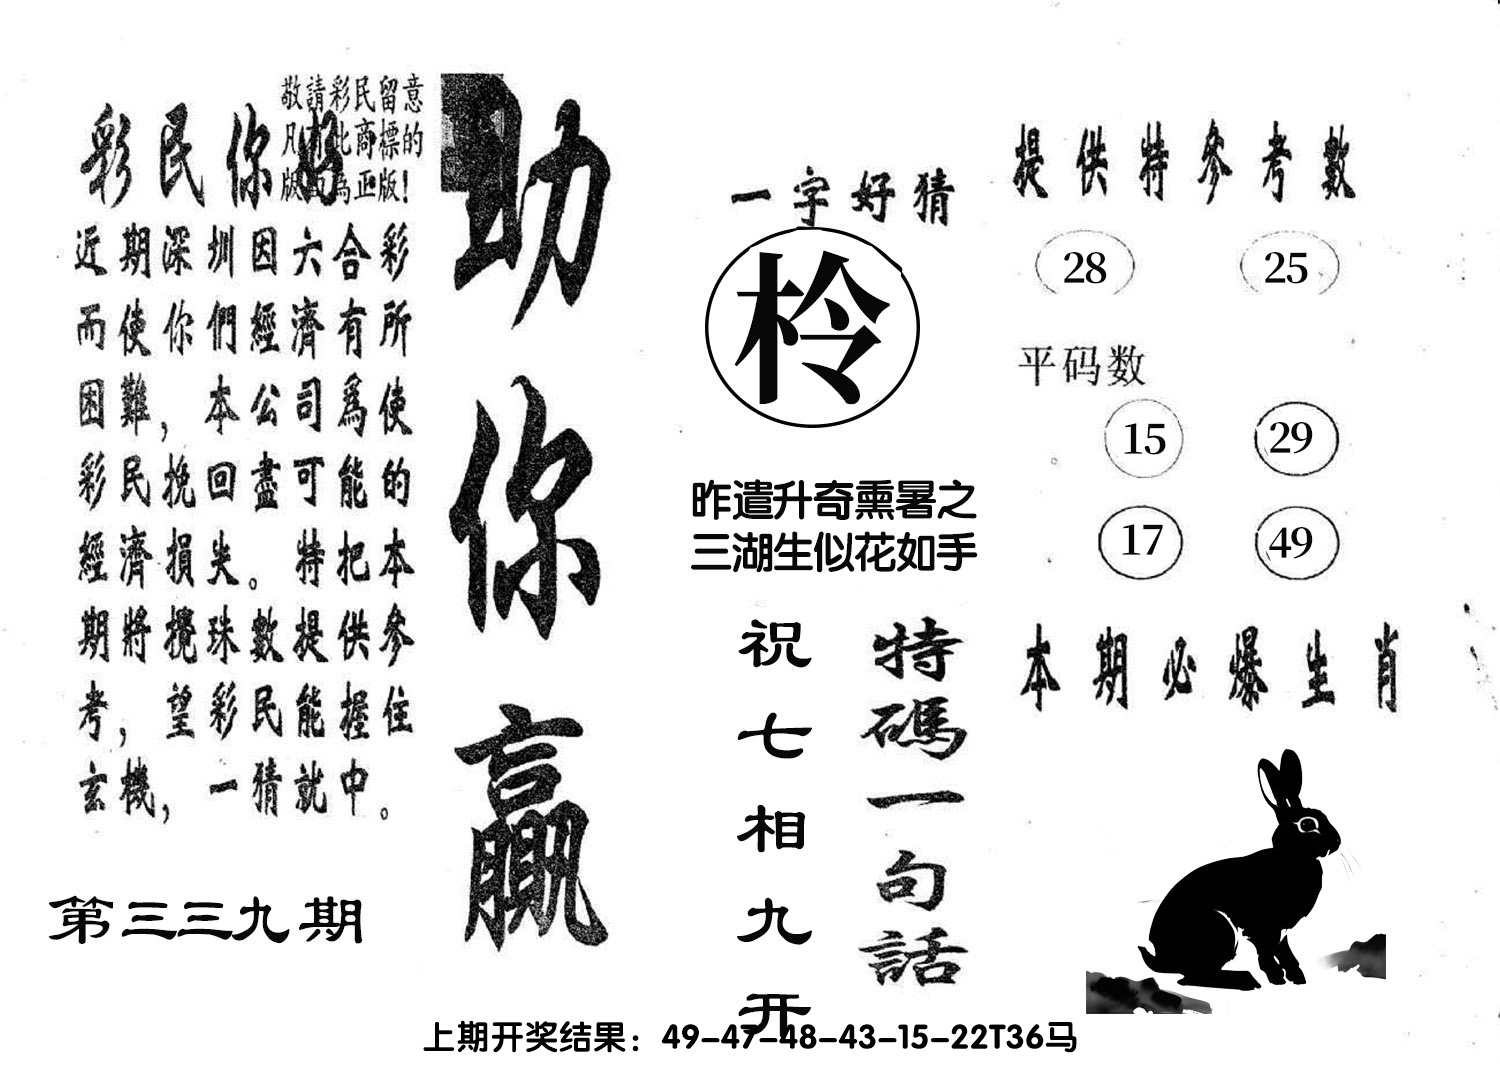 敬請彩民留意
凡有此商標的
版面為正版!
彩民你好
近期深圳因六合彩
而使你們經濟有所
困難，本公司爲使
彩民挽回盡可能的
經濟損失。特把本
期將攪珠數提供參
考，望彩民能握住
玄機，一猜就中。
第三三九期
助你贏
一字好猜
柃
昨遣升奇熏暑之
三湖生似花如手
特碼一句話
祝七相九开
提供特參考數
28 25
平码数
15 29
17 49
本期必爆生肖
上期开奖结果：49-47-48-43-15-22T36马